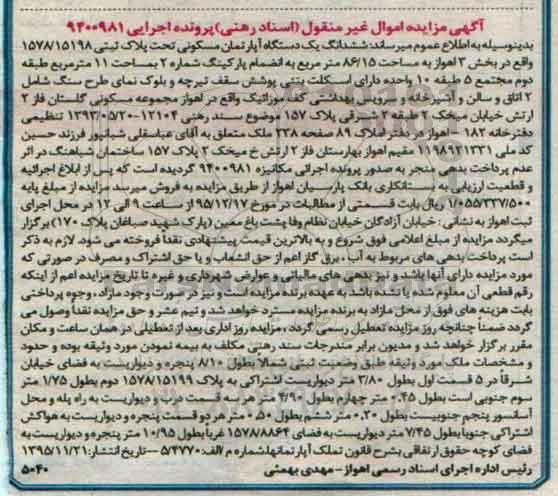 آگهی مزایده اموال غیر منقول (اسناد رهنی) پرونده اجرایی ۹۴۰۰۹۸۱
بدینوسیله به اطلاع عموم میرساند: ششدانگ یک دستگاه آپارتمان مسکونی تحت پلاک ثبتی ۱۵۷۸/۱۵۱۹۸
واقع در بخش ۳ اهواز به مساحت ۸۶/۱۵ متر مربع به انضمام پارکینگ شماره ۲ بمساحت ۱۱ مترمربع طبقه
دوم مجتمع ۵ طبقه ۱۰ واحده دارای اسکلت بتنی پوشش سقف تیرچه و بلوک نمای طرح سنگ شامل
۲ اتاق و سالن و آشپزخانه و سرویس بهداشتی کف موزائیک واقع در اهواز مجموعه مسکونی گلستان فاز ۲
ارتش خیابان میخک ۲ طبقه ۲ شرقی پلاک ۱۵۷ موضوع سند رهنی ۱۲۱۰۴-۱۳۹۳/۰۵/۲۰ تنظیمی
دفترخانه ۱۸۲ - اهواز در دفتر املاک ۸۹ صفحه ۲۳۸ ملک متعلق به آقای عباسقلی شبانپور فرزند حسین
کد ملی ۱۱۹۸۹۲۱۳۳۱ مقیم اهواز بهارستان فاز ۲ ارتش خ میخک ۲ پلاک ۱۵۷ ساختمان شباهنگ در اثر
عدم پرداخت بدهی منجر به صدور پرونده اجرائی مکانیزه ۹۴۰۰۹۸۱ گردیده است که پس از ابلاغ اجرائیه
و قطعیت ارزیابی به بستانکاری بانک پارسیان اهواز از طریق مزایده به فروش میرسد مزایده از مبلغ پایه
۱/۰۵۵/۳۳۷/۵۰۰ ریال بابت قسمتی از مطالبات در مورخ ۹۵/۱۲/۱۷ از ساعت ۹ الی ۱۲ در محل اجرای
ثبت اهواز به نشانی: خیابان آزادگان خیابان نظام وفا پشت باغ معین (پارک شهید صباغان پلاک ۱۷۰) برگزار
میگردد مزایده از مبلغ اعلامی فوق شروع و به بالاترین قیمت پیشنهادی نقداً فروخته می شود. لازم به ذکر
است پرداخت بدهی های مربوط به آب، برق گاز اعم از حق انشعاب و یا حق اشتراک و مصرف در صورتی که
مورد مزایده دارای آنها باشد و نیز بدهی های مالیاتی و عوارض شهرداری و غیره تا تاریخ مزایده اعم از اینکه
رقم قطعی آن معلوم شده یا نشده باشد به عهده برنده مزایده است و نیز در صورت وجود مازاد، وجوه پرداختی
بابت هزینه های فوق از محل مازاد به برنده مزایده مسترد خواهد شد و نیم عشر و حق مزایده نقداً وصول می
گردد ضمناً چنانچه روز مزایده تعطیل رسمی گردد، مزایده روز اداری بعد از تعطیلی در همان ساعت و مکان
مقرر برگزار خواهد شد و مدیون برابر مندرجات سند رهنی مکلف به بیمه نمودن مورد وثیقه بوده و حدود
و مشخصات ملک مورد وثیقه طبق وضعیت ثبتی شمالا بطول ۸/۱۰ پنجره و دیواریست به فضای خیابان
شرقاً در ۵ قسمت اول بطول ۳/۸۰ متر دیواریست اشتراکی به پلاک ۱۵۷۸/۱۵۱۹۹ دوم بطول ۱/۷۵ متر
سوم جنوبی است بطول ۰.۴۵ متر چهارم بطول ۴/۹۰ متر هر سه قسمت درب و دیواریست به راه پله و محل
آسانسور پنجم جنوبیست بطول ۰.۲۰ متر ششم بطول ۰.۵۰ متر هر دو قسمت پنجره و دیواریست به هواکش
اشتراکی جنوبا بطول ۷/۴۵ متر دیواریست به فضای ۱۵۷۸/۸۸۶۴ غرباً بطول ۱۰/۹۵ متر پنجره و دیواریست به
فضای کوچه حقوق ارتفاقی بشرح قانون تملک آپارتمانها شماره م/الف: ۵/۴۷۷۰ - تاریخ انتشار: ۱۳۹۵/۱۱/۲۱
رئیس اداره اجرای اسناد رسمی اهواز - مهدی بهمنی ۵۰۴۰